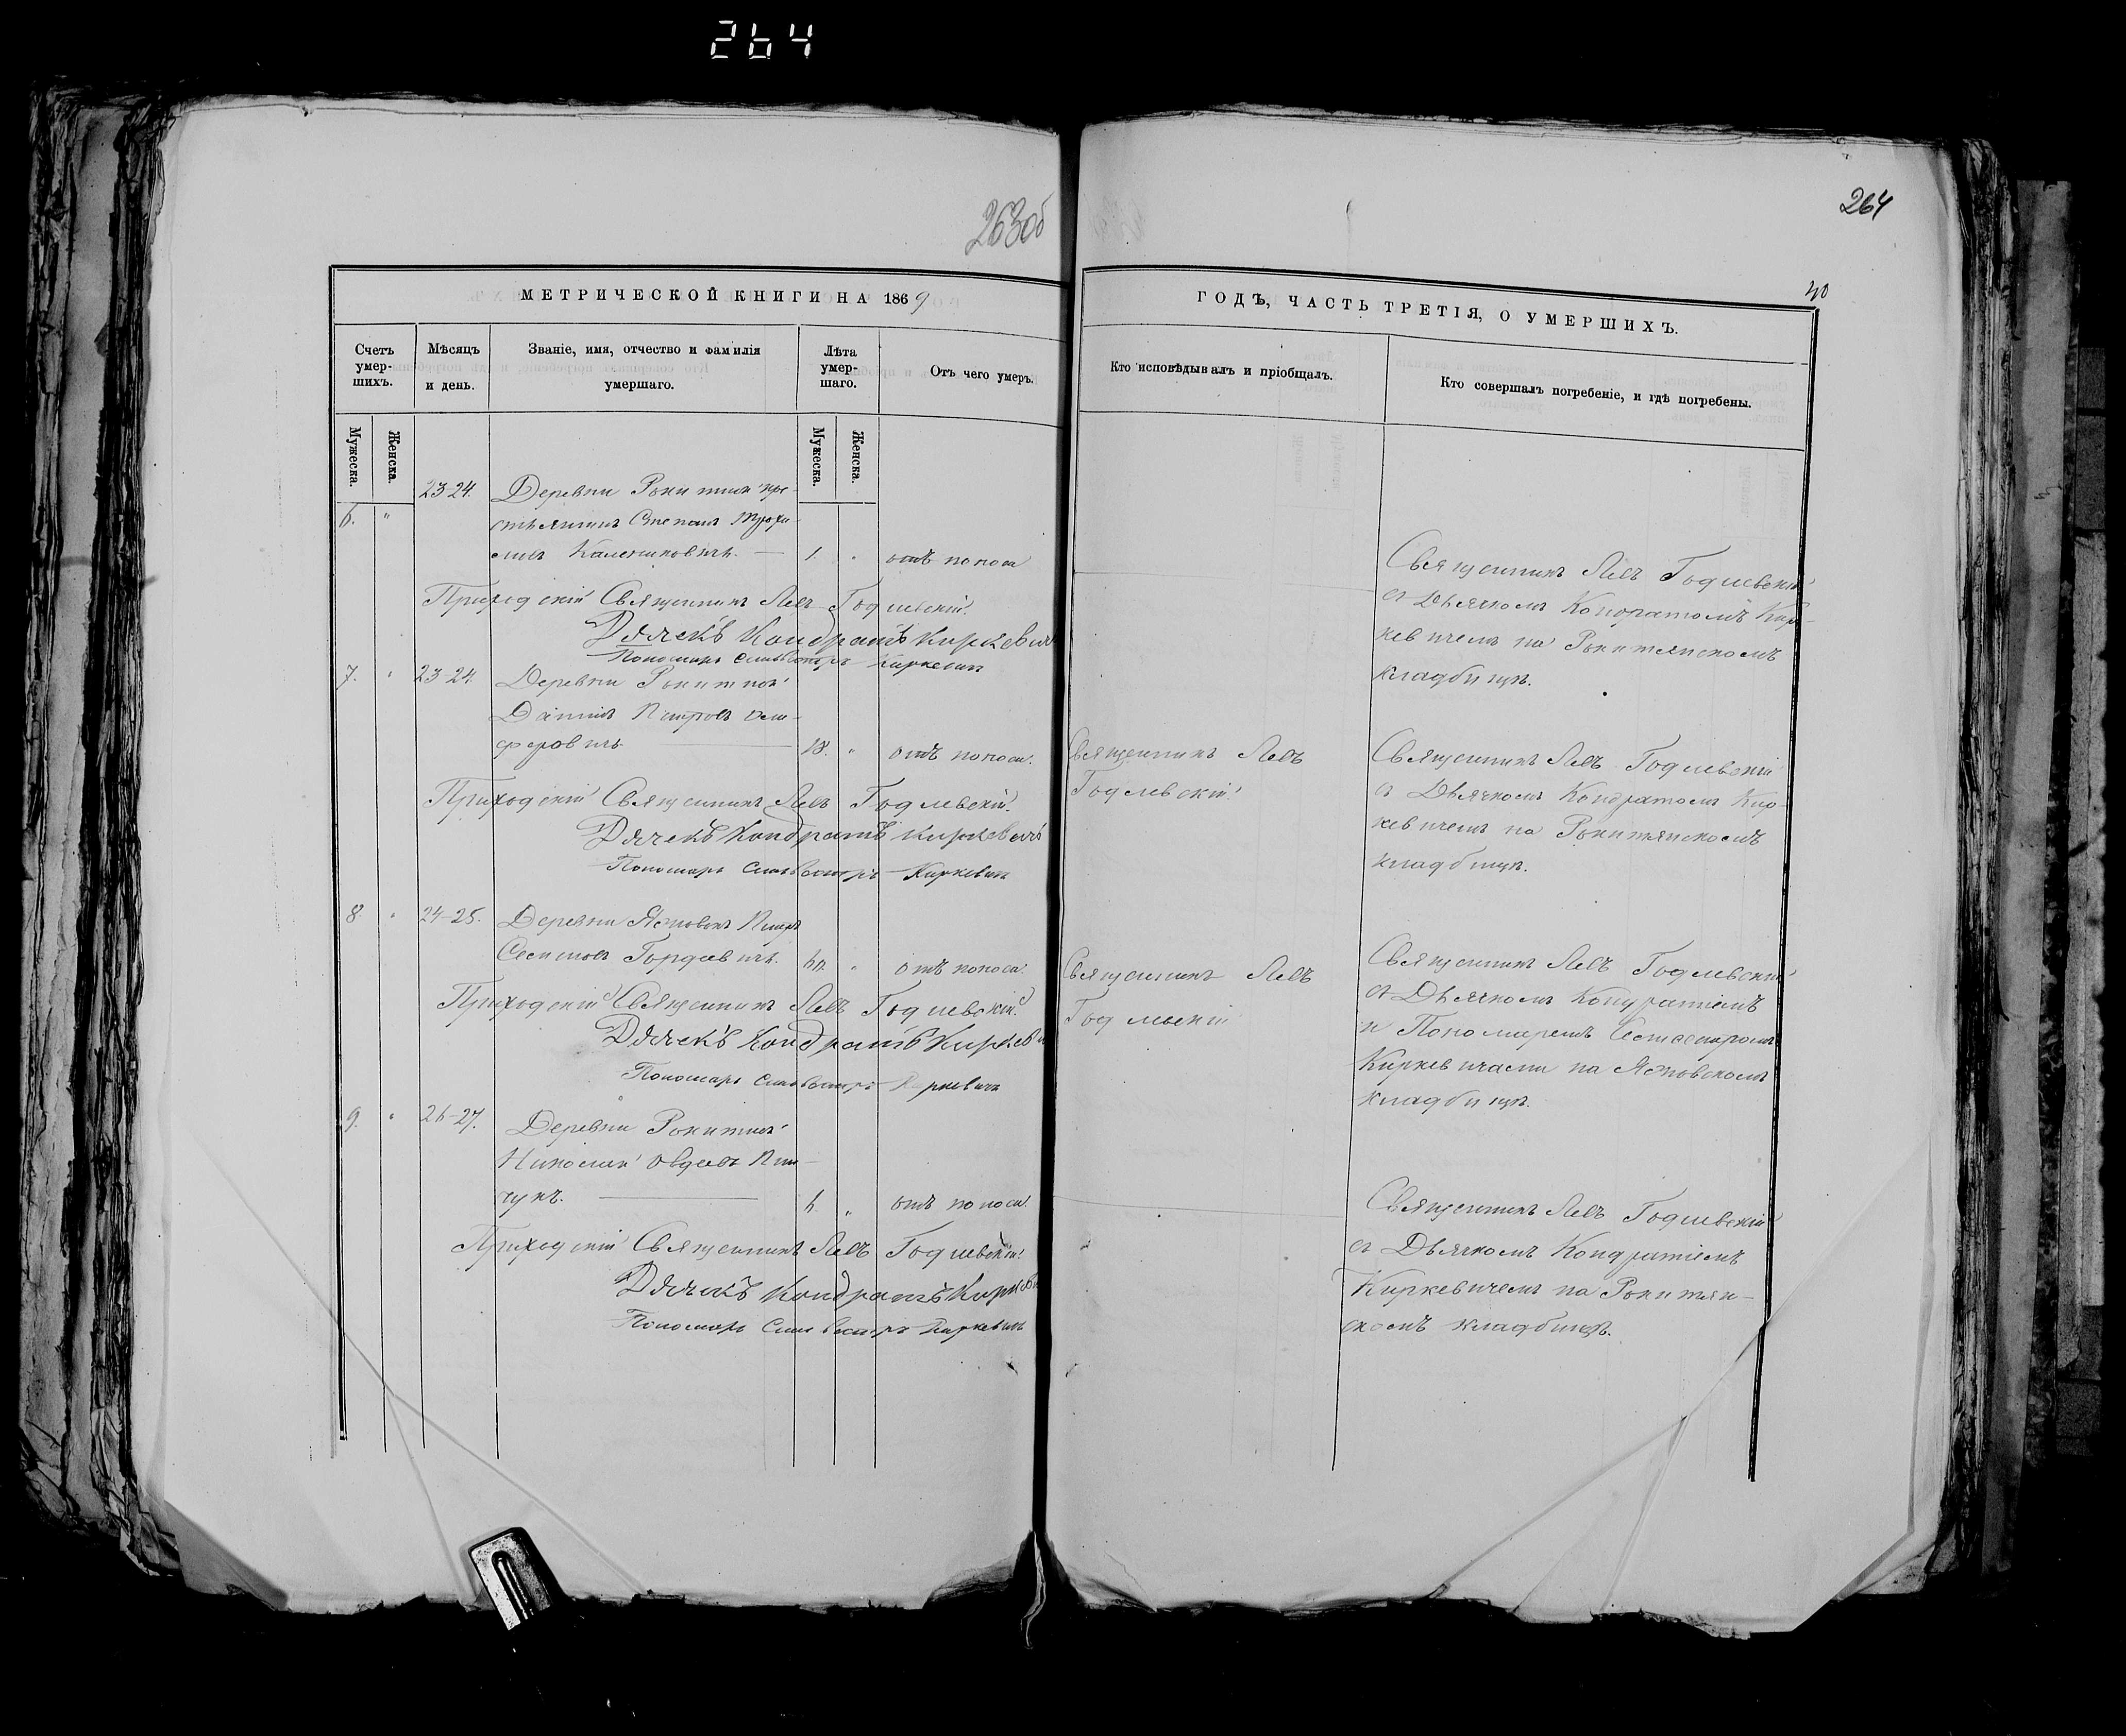 264
263об
264
40
МЕТРИЧЕСКОЙ КНИГИ НА 1869
ГОДЪ, ЧАСТЬ ТРЕТІЯ, О УМЕРШИХЪ.
Счетъ умер-
шихъ.
Мѣсяцъ
и день.
Званіе, имя, отчество и фамилія
умершаго.
Лѣта
умер-
шаго.
Отъ чего умеръ.
Кто исповѣдывалъ и пріобщалъ.
Кто совершалъ погребеніе, и гдѣ погребены.
Мужеска.
Женска.
Мужеска.
Женска.
6. " 23-24. Деревни Рокитной кре-
стьянинъ Степанъ Трофи-
мовъ 1. " отъ поноса
Священникъ Левъ Годлевскій
съ Дьячкомъ Кондратомъ Кир-
кевичемъ на Рокитянскомъ
кладбищѣ.
Приходскій Священникъ Левъ Годлевскій.
Дячекъ Кондратъ Киркевичъ
Пономарь Сильвестръ Киркевичъ
7. " 23-24. Деревни Рокитной
Даніилъ Петровъ
18. " отъ поноса.
Священникъ Левъ
Годлевскій.
Священникъ Левъ Годлевскій
съ Дьячкомъ Кондратомъ Кир-
кевичемъ на Рокитянскомъ
кладбищѣ.
Приходскій Священникъ Левъ Годлевскій.
Дячекъ Кондратъ Киркевичъ
Пономарь Сильвестръ Киркевичъ
8. " 24-25. Деревни Петръ
Семеновъ Гордѣевичъ. 60. " отъ поноса.
Священникъ Левъ
Годлевскій
Священникъ Левъ Годлевскій
съ Дьячкомъ Кондратіемъ
и Пономаремъ
Киркевичами на
кладбищѣ.
Приходскій Священникъ Левъ Годлевскій.
Дячекъ Кондратъ Киркевичъ
Пономарь Сильвестръ Киркевичъ
9. " 26-27. Деревни Рокитной
Николай Овдѣевъ
6. " отъ поноса.
Священникъ Левъ Годлевскій
съ Дьячкомъ Кондратіемъ
Киркевичемъ на Рокитян-
скомъ кладбищѣ.
Приходскій Священникъ Левъ Годлевскій.
Дячекъ Кондратъ Киркевичъ
Пономарь Сильвестръ Киркевичъ